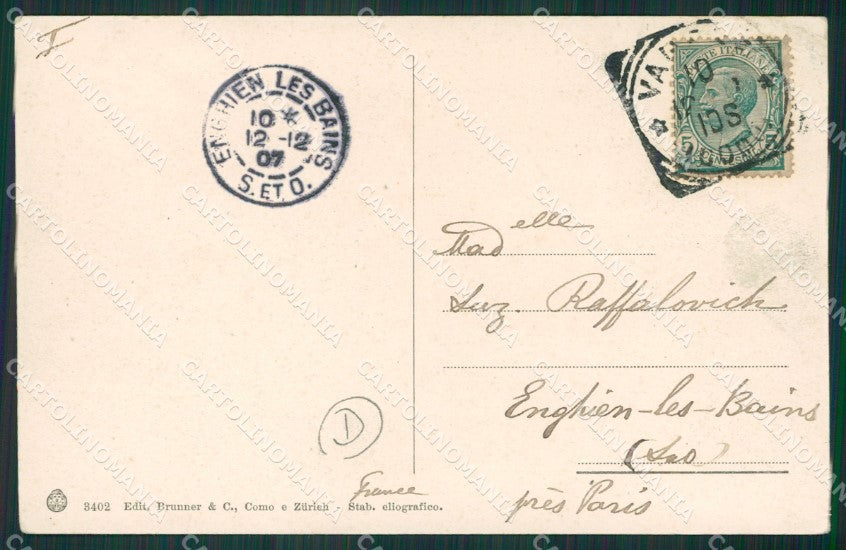 I
ENGHIEN LES BAINS
10 *
12 -12
07
S. ET O.
POSTE ITALIANE
10
Mad elle
Suz. Raffalovich
Enghien-les-Bains
(S&O)
près Paris
D
France
3402 Edit. Brunner & C., Como e Zürich - Stab. eliografico.
CARTOLINOMANIA